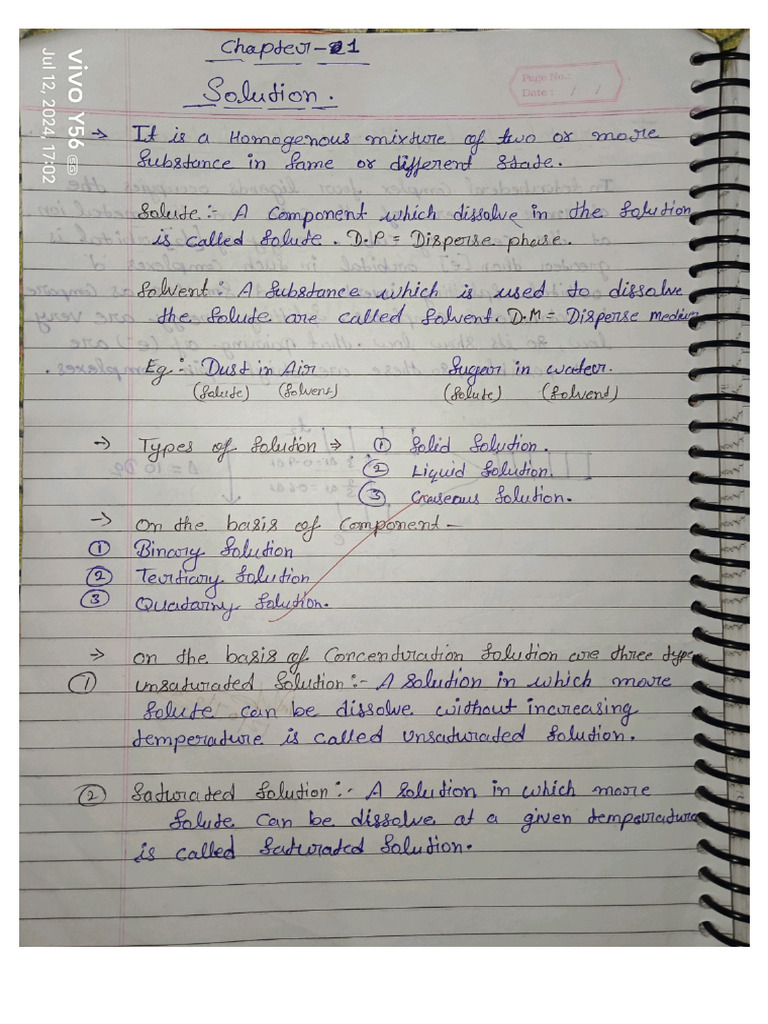 Chapter-1
Solution.
Page No.:
Date : / /
vivo Y56
Jul 12, 2024, 17:02
→ It is a Homogenous mixture of two or more
Substance in Same or different State.
Solute :- A Component which dissolve in the Solution
is called Solute. D.P = Disperse phase.
Solvent : A Substance which is used to dissolve
the Solute are called Solvent. D.M = Disperse medium
Eg :- Dust in Air Sugar in water.
(Solute) (Solvent) (Solute) (Solvent)
→ Types of Solution → ① Solid Solution.
② Liquid Solution.
③ Gaseous Solution.
→ On the basis of Component –
① Binary Solution
② Tertiary Solution
③ Quatarny Solution.
→ on the basis of Concentration Solution are three type
① unsaturated Solution :- A Solution in which more
Solute can be dissolve without increasing
temperature is called unsaturated Solution.
② Saturated Solution :- A Solution in which more
Solute Can be dissolve at a given temperature
is called Saturated Solution.